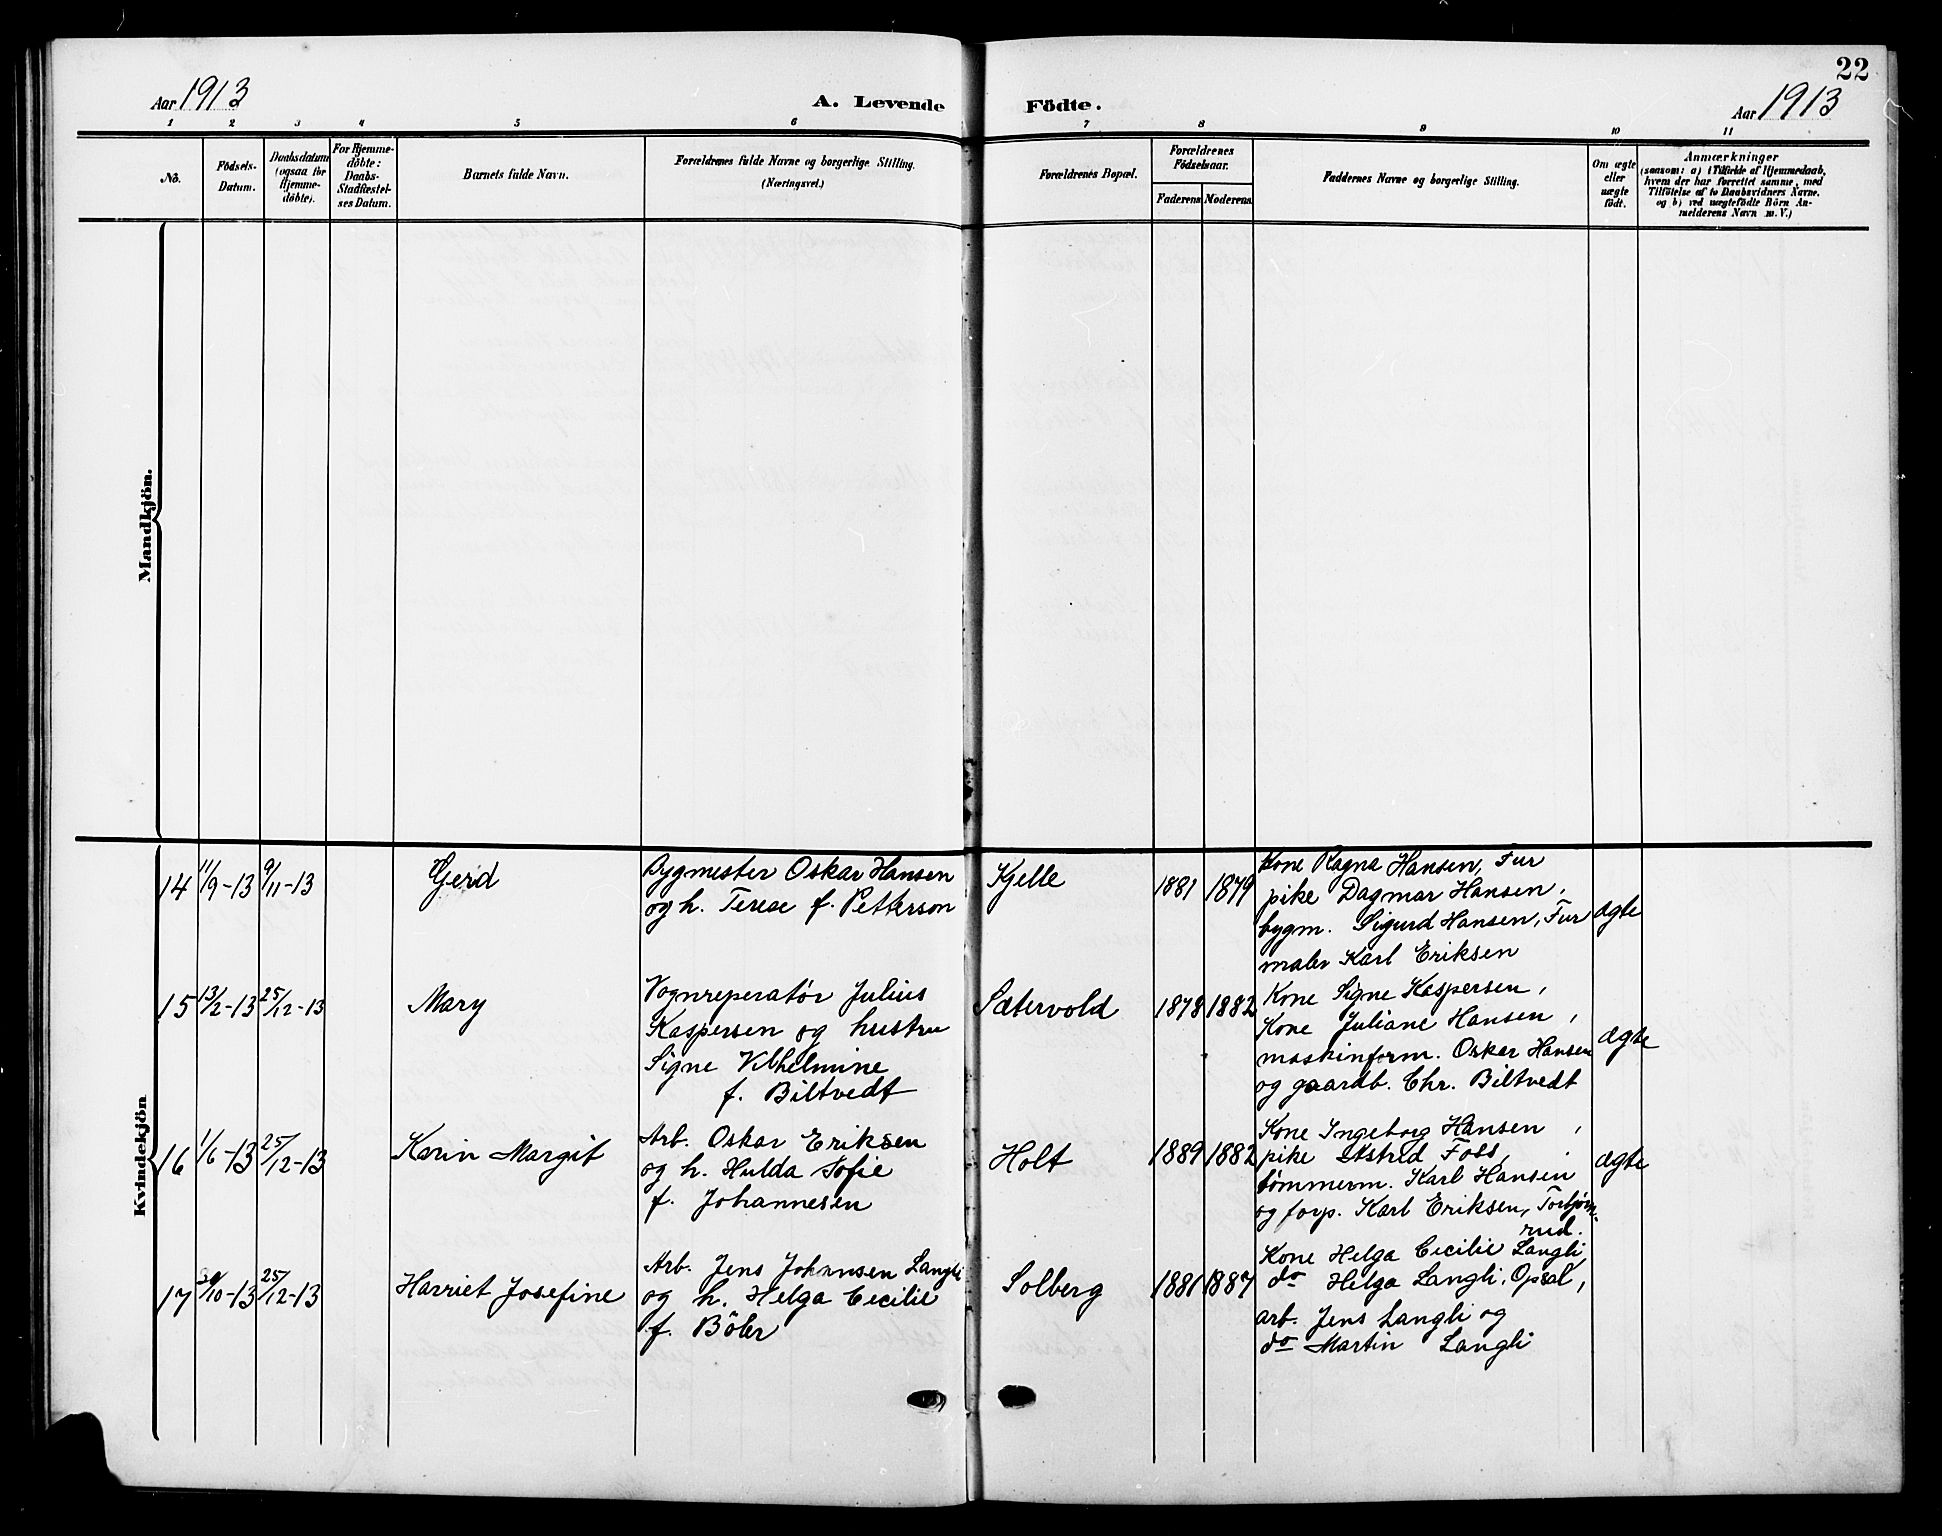 22
Aar 1913
A. Levende Födte.
Aar 1913
1 2 3 4 5 6 7 8 9 10 11
No.
Födsels-
Datum.
Daabsdatum
(ogsaa for
Hjemme-
döbte).
For Hjemme-
döbte:
Daabs-
Stadfæstel-
ses Datum.
Barnets fulde Navn.
Forældrenes fulde Navne og borgerlige Stilling.
(Næringsvei.)
Forældrenes Bopæl.
Forældrenes
Födselsaar.
Faderens Moderens
Faddernes Navne og borgerlige Stilling.
Om ægte
eller
uægte
födt.
Anmærkninger
(saasom: a) i Tilfælde af Hjemmedaab,
hvem der har forrettet samme, med
Tilföielse af to Daabsvidners Navne.
og b) ved uægtefödte Börn An-
melderens Navn m. V.)
Mandkjön.
Kvindekjön
14 11/9-13 9/11-13
Gerd
Bygmester Oskar Hansen
og h. Terese f. Petterson
Kjelle
1881 1879
Kone Ragna Hansen, Fur
pike Dagmar Hansen,
bygm. Sigurd Hansen, Fur
maler Karl Eriksen
ægte
15 13/2-13 25/12-13
Mary
Vognreperatør Julius
Kaspersen og hustru
Signe Vilhelmine
f. Biltvedt
Sætervold
1878 1882
Kone Signe Kaspersen,
Kone Juliane Hansen,
maskinform. Oskar Hansen
og gaardb. Chr. Biltvedt
ægte
16 1/6-13 25/12-13
Karin Margit
Arb. Oskar Eriksen
og h. Hulda Sofie
f. Johannesen
Holt
1889 1882
Kone Ingeborg Hansen,
pike Astrid Foss,
tømmerm. Karl Hansen
og forp. Karl Eriksen, Torbjørn-
rud.
ægte
17 30/10-13 25/12-13
Harriet Josefine
Arb. Jens Johansen Langli
og h. Helga Cecilie
f. Böler
Solberg
1881 1887
Kone Helga Cecilie Langli
do Helga Langli, Opsal,
arb. Jens Langli og
do Martin Langli